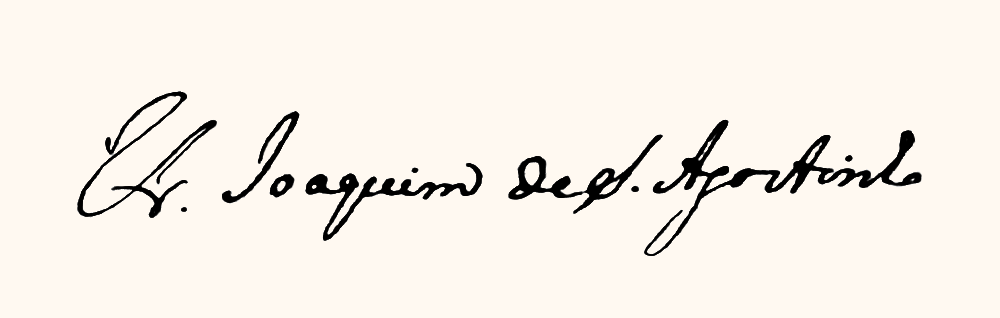 Fr. Joaquim de S. Agostinho